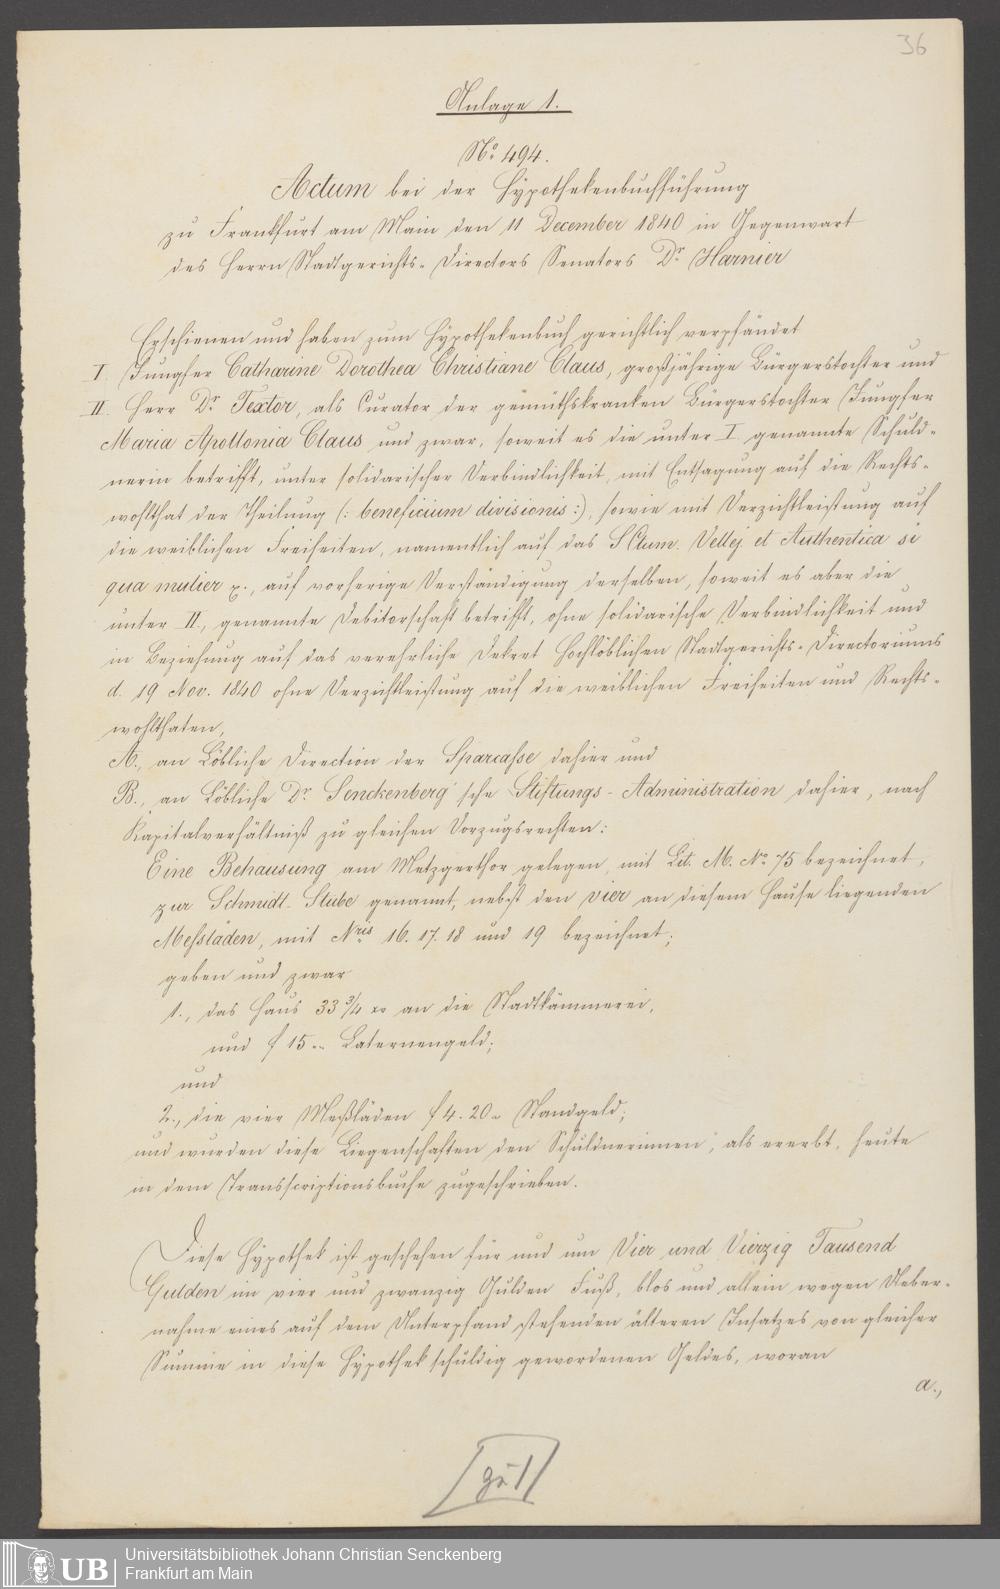 36
Anlage 1.
No. 494.
Actum bei der Hypothekenbuchführung
zu Frankfurt am Main den 11 December 1840 in Gegenwart
des Herrn Stadtgerichts-Directors Senators Dr. Harnier
Erschienen und haben zum Hypothekenbuch gerichtlich verpfändet
I. Jungfer Catharine Dorothea Christiane Claus, großjährige Bürgerstochter und
II. Herr Dr. Textor, als Curator der gemüthskranken Bürgerstochter Jungfer
Maria Apollonia Claus und zwar, soweit es die unter I. genannte Schuld-
nerin betrifft, unter solidarischer Verbindlichkeit, mit Entsagung auf die Rechts-
wohlthat der Theilung (: beneficium divisionis :), sowie mit Verzichtleistung auf
die weiblichen Freiheiten, namentlich auf das SCtum. Vellej. et Authentica si
qua mulier, auf vorherige Verständigung derselben, soweit es aber die
unter II., genannte Debitorschaft betrifft, ohne solidarische Verbindlichkeit und
in Beziehung auf das verehrliche Dekret Hochlöblichen Stadtgerichts-Directoriums
d. 19 Nov. 1840 ohne Verzichtleistung auf die weiblichen Freiheiten und Rechts-
wohlthaten,
A., an Löbliche Direction der Sparcasse dahier und
B., an Löbliche Dr. Senckenberg'sche Stiftungs-Administration dahier, nach
Kapitalverhältniß zu gleichen Vorzugsrechten:
Eine Behausung am Metzgerthor gelegen, mit Lit. M. No. 75 bezeichnet,
zur Schmidt-Stube genannt, nebst den vier an diesem Hause liegenden
Messläden, mit Nris 16. 17. 18 und 19 bezeichnet;
geben und zwar
1., das Haus 33 3/4 xr an die Stadtkämmerei,
und f 15.- Laternengeld;
und
2., die vier Meßläden f 4. 20- Standgeld;
und wurden diese Liegenschaften den Schuldnerinnen, als ererbt, heute
in dem Transscriptionsbuche zugeschrieben.
Diese Hypothek ist geschehen für und um Vier und Vierzig Tausend
Gulden im vier und zwanzig Gulden Fuß, blos und allein wegen Ueber-
nahme eines auf dem Unterpfand stehenden älteren Insatzes von gleicher
Summe in diese Hypothek schuldig gewordenen Geldes, woran
a.,
UB Universitätsbibliothek Johann Christian Senckenberg
Frankfurt am Main